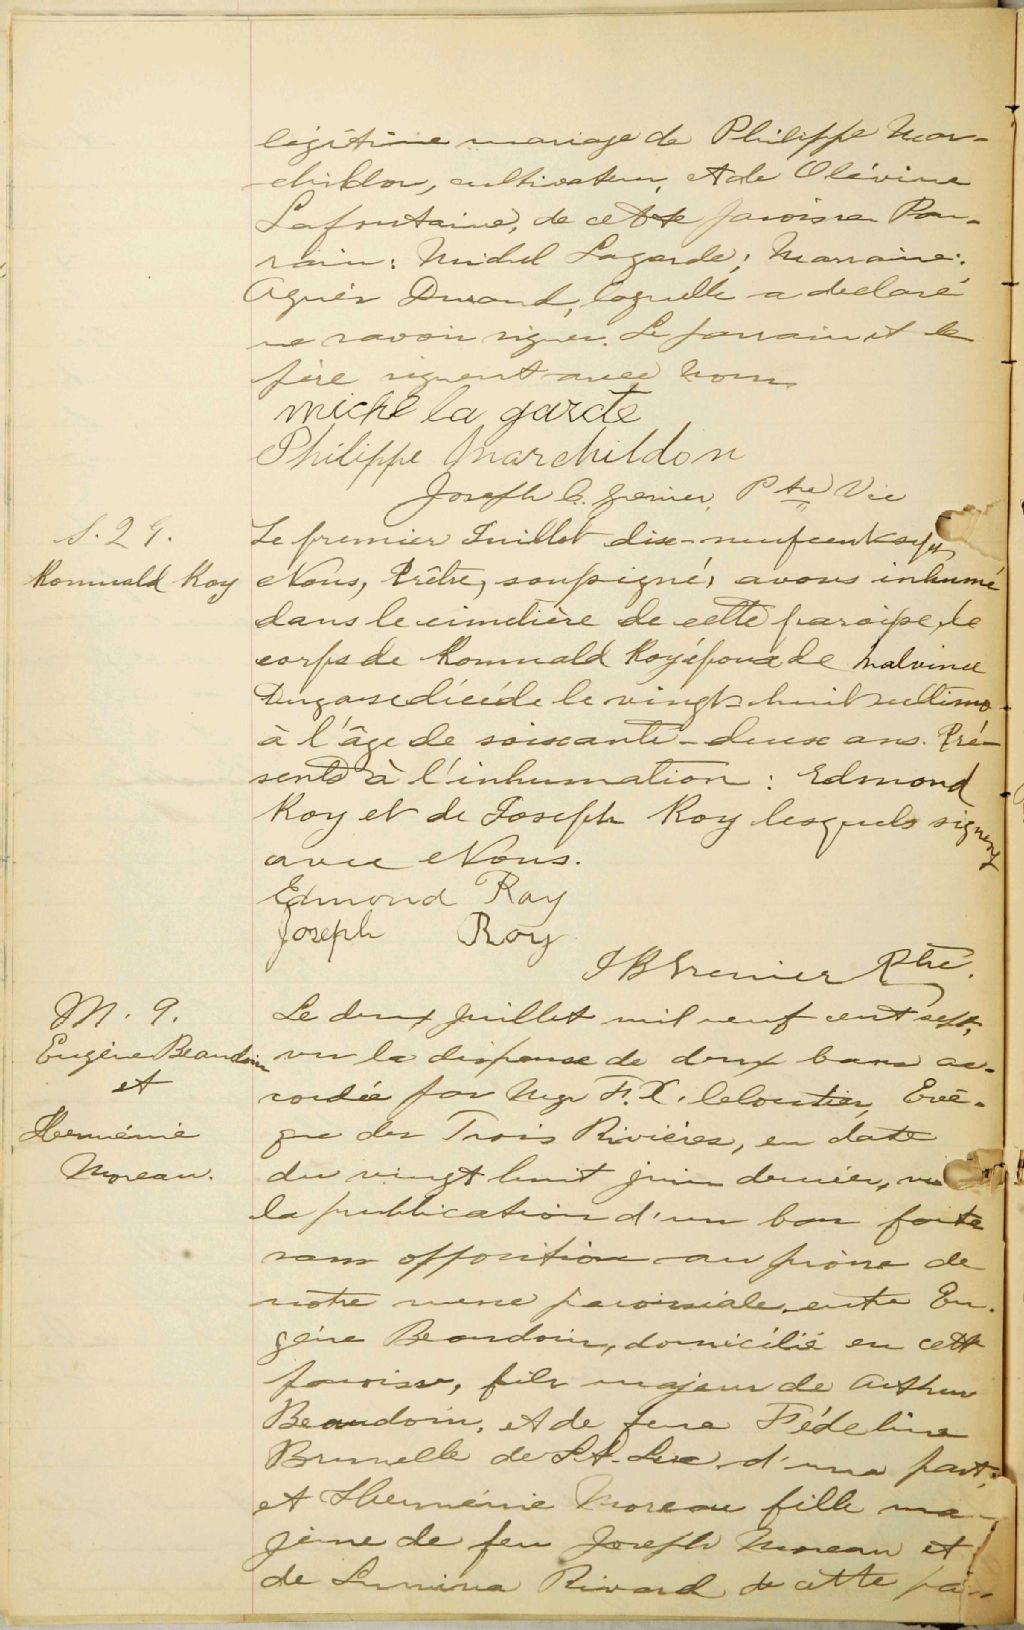 légitime mariage de Philippe Mar-
childon, cultivateur, et de Olévine
Lafontaine, de cette paroisse. Par-
rain: Michel Lagarde; Marraine:
Agnès Durand, laquelle a déclaré
ne savoir signer. Le parrain et le
père signent avec nous
michel la garde
Philippe Marchildon
Joseph C. Grenier, Ptre Vic
S. 29.
Romuald Roy
Le premier Juillet dix-neufcent sept,
Nous, Prêtre, soussigné, avons inhumé
dans le cimetière de cette paroisse, le
corps de Romuald Roy époux de Malvina
décédé le vingt-huit ultimo
à l'âge de soixante-deux ans. Pré-
sents à l'inhumation: Edmond
Roy et de Joseph Roy lesquels signent
avec Nous.
Edmond Roy
Joseph Roy
J B Grenier Ptre.
M. 9.
Eugène Beaudoin
et
Herménie
Moreau.
Le deux Juillet mil neuf cent sept,
vu la dispense de deux bans ac-
cordée par Mgr F. X. Cloutier, Evê-
que des Trois Rivières, en date
du vingt huit juin dernier, vu
la publication d'un ban faite
sans opposition au prône de
notre messe paroissiale, entre Eu-
gène Beaudoin, domicilié en cette
paroisse, fils majeur de Arthur
Beaudoin, et de feue Fédeline
Brunelle de St. Luc d'une part,
et Herménie Moreau fille ma-
jeure de feu Joseph Moreau et
de Lumina Rivard de cette pa-